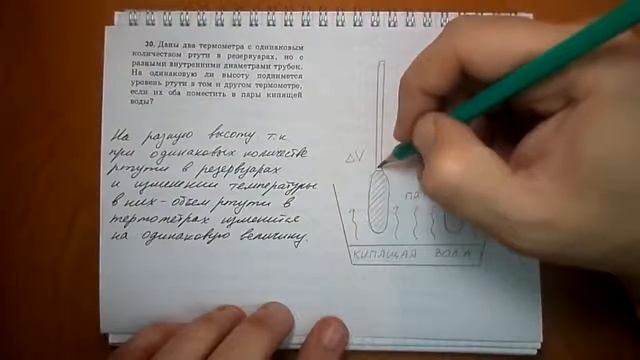 30. Даны два термометра с одинаковым
количеством ртути в резервуарах, но с
разными внутренними диаметрами трубок.
На одинаковую ли высоту поднимется
уровень ртути в том и другом термометре,
если их оба поместить в пары кипящей
воды?
На разную высоту т.к
при одинаковых количестве
ртути в резервуарах
и изменении температуры
в них - объем ртути в
термометрах изменится
на одинаковую величину.
ΔV
па
КИПЯЩАЯ ВОДА